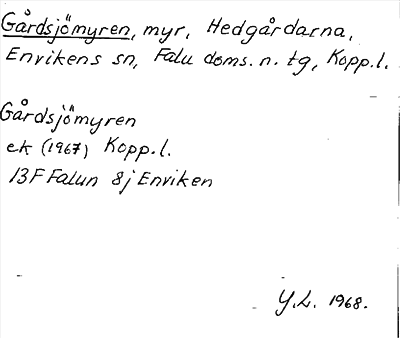 Gårdsjömyren, myr, Hedgårdarna,
Envikens sn, Falu doms. n. tg, Kopp.l.
Gårdsjömyren
ek (1967) Kopp.l.
13F Falun 8j Enviken
Y.L. 1968.